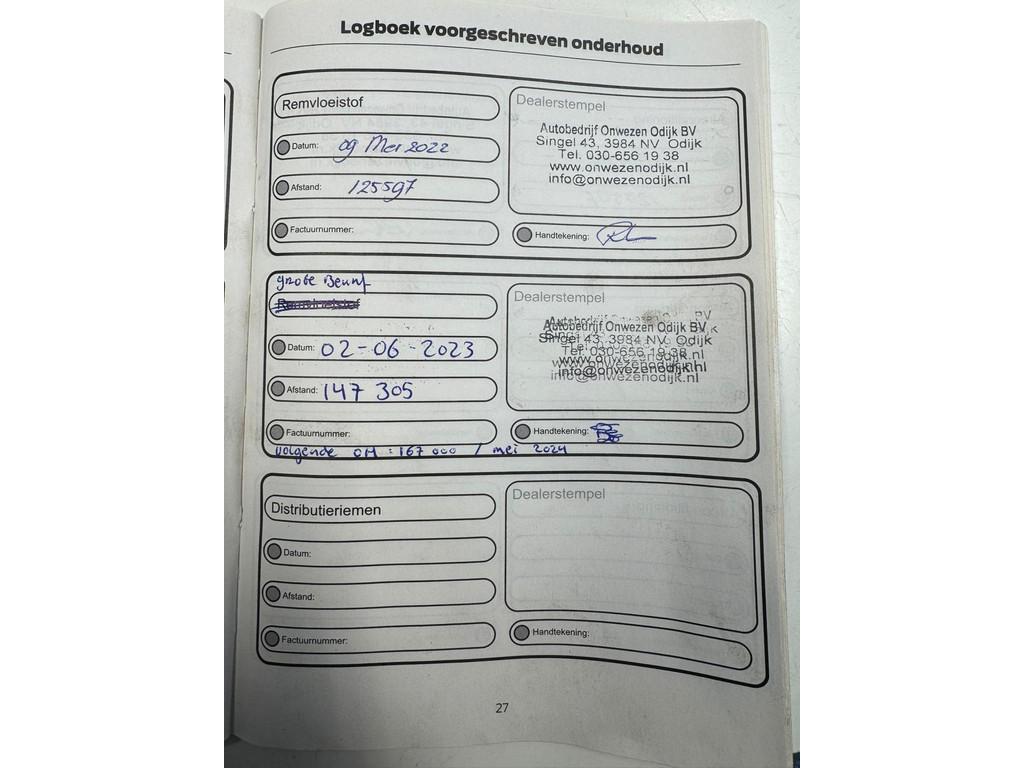 Logboek voorgeschreven onderhoud
Remvloeistof
Datum: 09 Mei 2022
Afstand: 125597
Factuurnummer:
Dealerstempel
Autobedrijf Onwezen Odijk BV
Singel 43, 3984 NV Odijk
Tel. 030-656 19 38
www.onwezenodijk.nl
info@onwezenodijk.nl
Handtekening:
grote Beurt
Remvloeistof
Datum: 02-06-2023
Afstand: 147 305
Factuurnummer:
volgende OH : 167 000 / mei 2024
Dealerstempel
Autobedrijf Onwezen Odijk BV
Singel 43, 3984 NV Odijk
Tel. 030-656 19 38
www.onwezenodijk.nl
info@onwezenodijk.nl
Handtekening:
Distributieriemen
Datum:
Afstand:
Factuurnummer:
Dealerstempel
Handtekening:
27